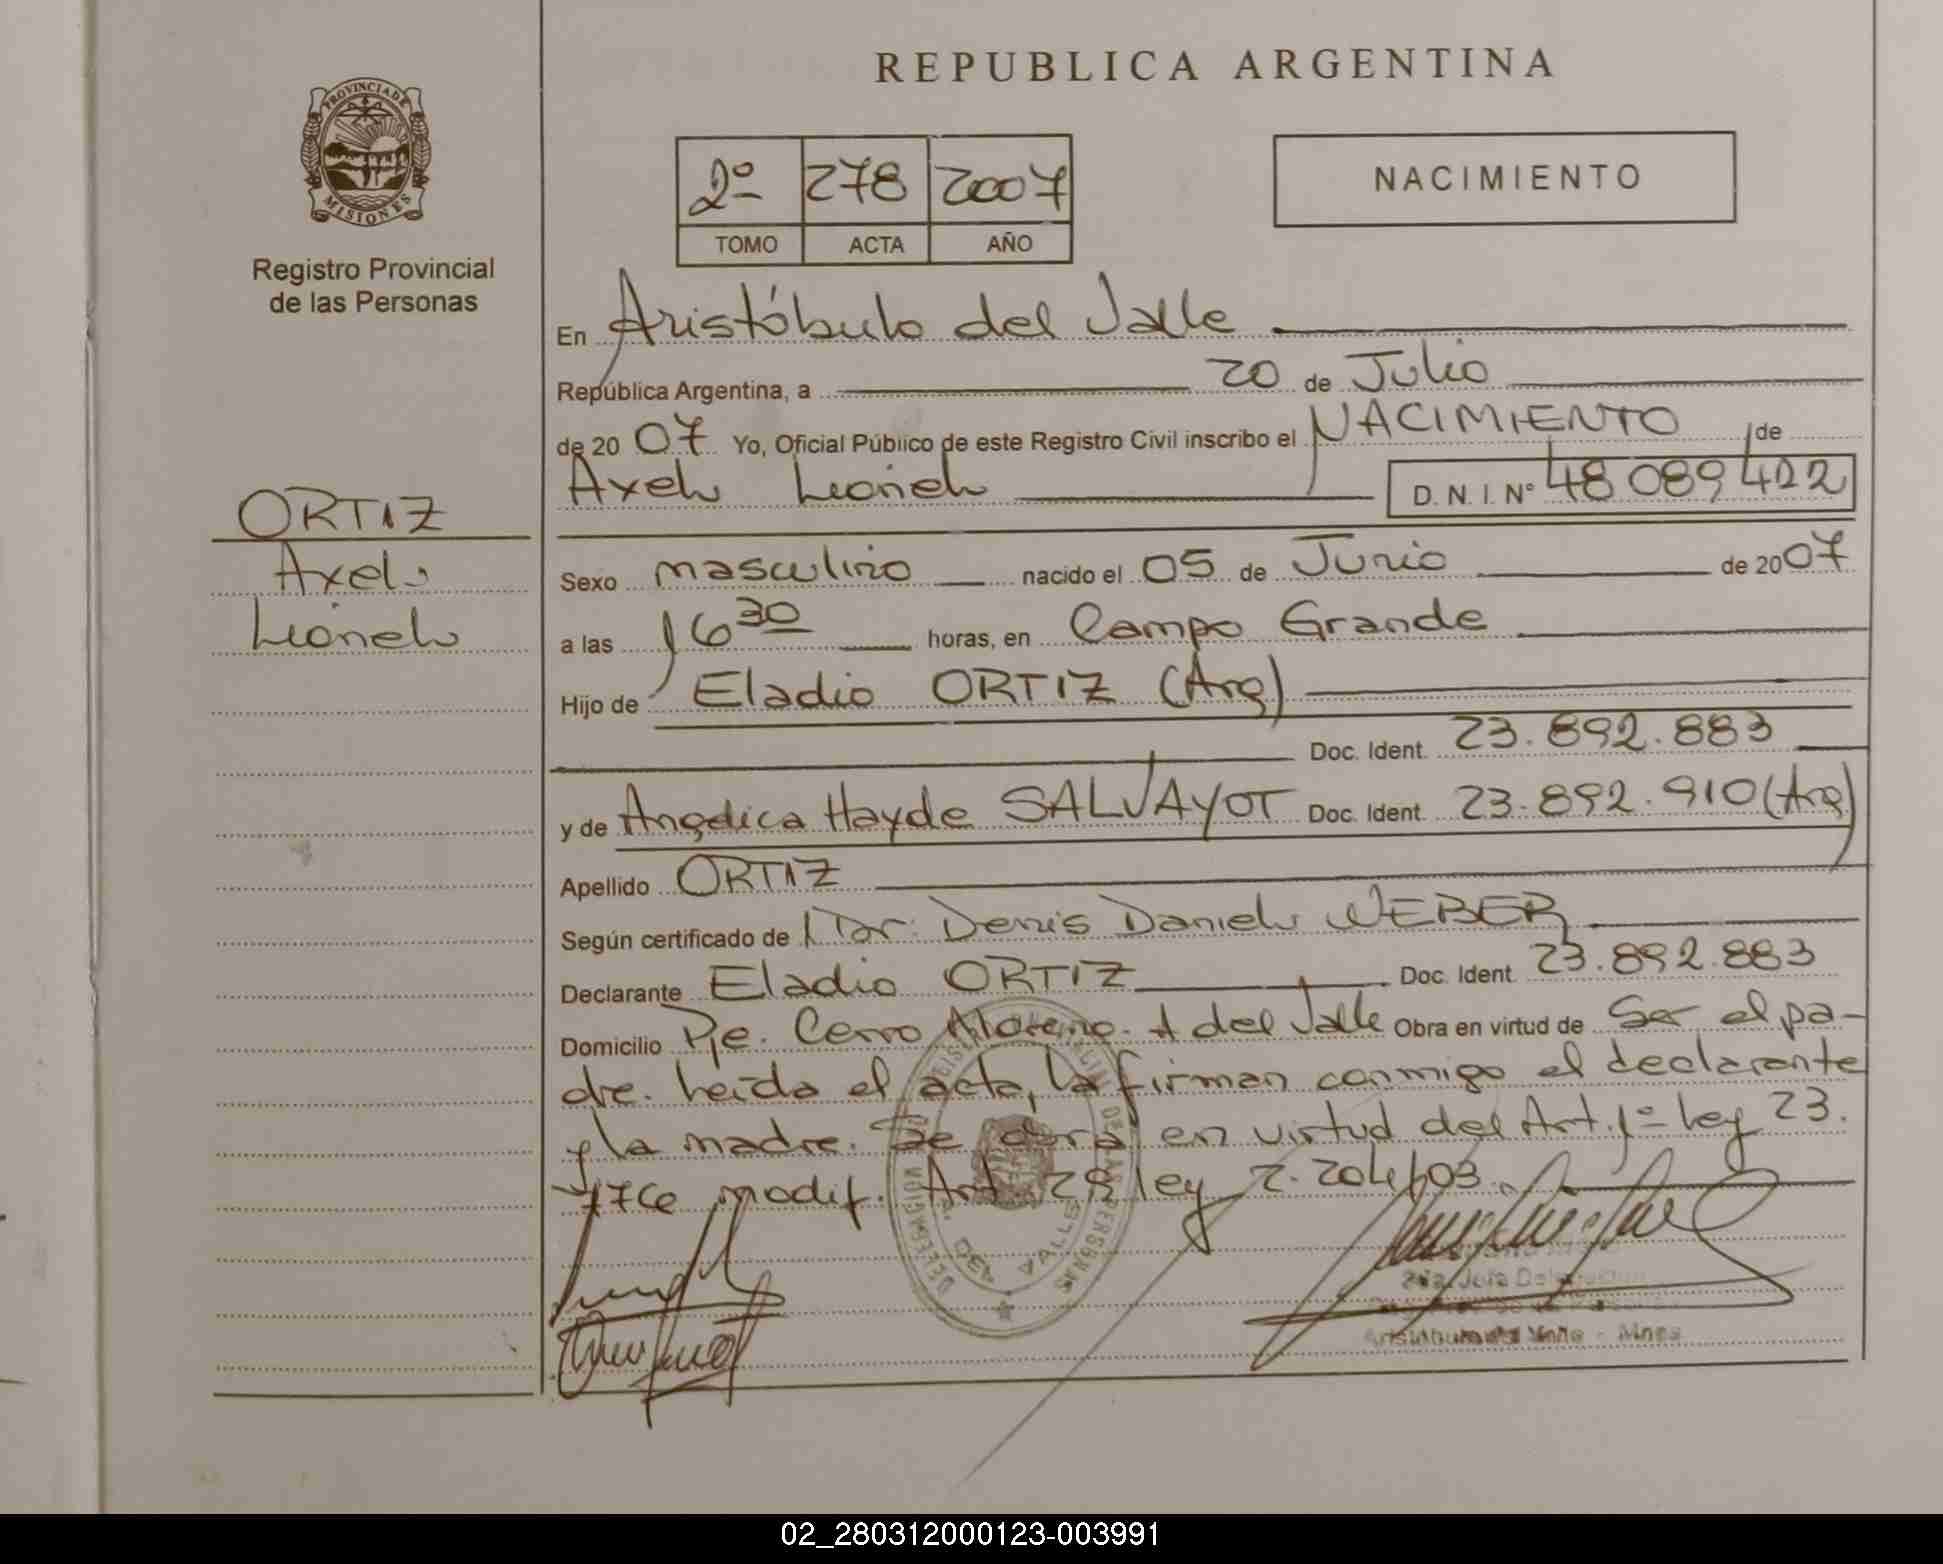 REPUBLICA ARGENTINA
PROVINCIA DE
MISIONES
Registro Provincial
de las Personas
2º 278 2007
TOMO ACTA AÑO
NACIMIENTO
ORTIZ
Axel
Lionel
En Aristóbulo del Valle
República Argentina, a 20 de Julio
de 2007 Yo, Oficial Público de este Registro Civil inscribo el NACIMIENTO de
Axel Lionel D. N. I. Nº 48 089 422
Sexo masculino nacido el 05 de Junio de 2007
a las 16 30 horas, en Campo Grande
Hijo de Eladio ORTIZ (Arg)
Doc. Ident. 23.892.883
y de Angelica Hayde SALVAYOT Doc. Ident. 23.892.910 (Arg)
Apellido ORTIZ
Según certificado de Dr. Denis Daniel WEBER
Declarante Eladio ORTIZ Doc. Ident. 23.892.883
Domicilio Pje. Cerro Moreno. A del Valle Obra en virtud de Ser el pa-
dre. Leída el acta, la firman conmigo el declarante
y la madre. Se obra en virtud del Art. 1º ley 23.
776 modif. Art. 28 ley 2.204/03.
DE LAS PERSONAS
DEL VALLE
Aristóbulo del Valle - Mnes
02_280312000123-003991